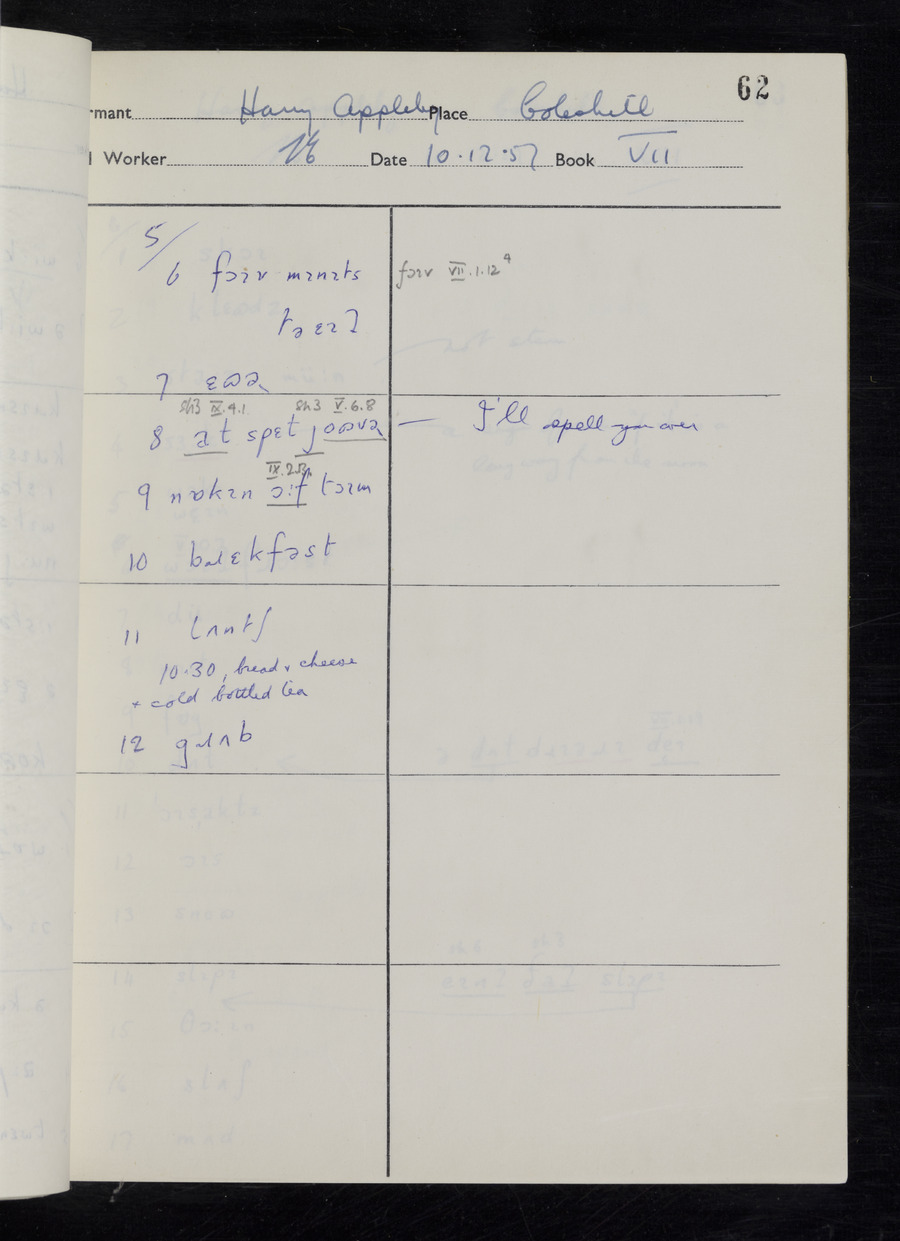 62
rmant Harry Appleby Place Coleshill
l Worker Date 10.12.57 Book VII
5/
6 fɔɪv mɪnɪts fɔɪv VII.1.12
tə ɛɪʔ
7
sh3 IX.4.1. sh3 V.6.8
8 spɛt — I'll spell you over
IX.2.
9 nɒkɪn ɔːf tɔɪm
10 bɹɛkfəst
11 lʌntʃ
10.30, bread + cheese
+ cold bottled tea
12 gɹʌb